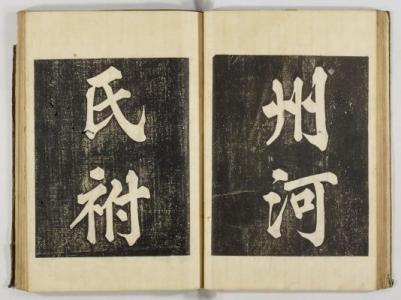 州河
氏祔